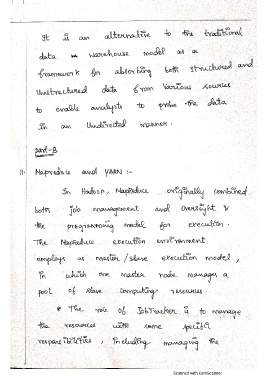 It is an alternative to the traditional
data warehouse model as a
framework for absorbing both structured and
Unstructured data from various sources
to enable analysts to probe the data
in an Undirected manner.
part-B
11. Mapreduce and YARN :-
In Hadoop, MapReduce originally combined
both job management and oversight &
the programming model for execution.
The MapReduce execution environment
employs as master/slave execution model,
in which one master node manages a
pool of slave computing resources.
* The role of JobTracker is to manage
the resources with some specific
responsibilities, including managing the
Scanned with CamScanner